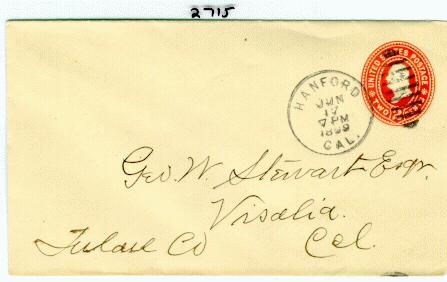 2715
UNITED STATES POSTAGE
TWO
HANFORD
JUN
17
7 PM
1899
CAL.
Geo. W. Stewart Esqr.
Visalia.
Tulare Co Cal.